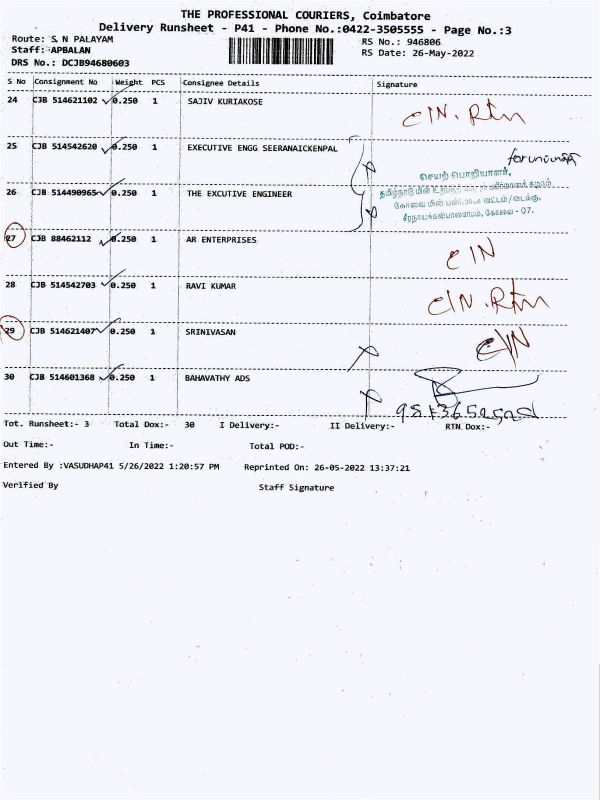 THE PROFESSIONAL COURIERS, Coimbatore
Delivery Runsheet - P41 - Phone No.:0422-3505555 - Page No.:3
Route: S N PALAYAM RS No.: 946806
Staff: APBALAN RS Date: 26-May-2022
DRS No.: DCJB94680603
S No Consignment No Weight PCS Consignee Details Signature
24 CJB 514621102 0.250 1 SAJIV KURIAKOSE C/N. Rtn
25 CJB 514542620 0.250 1 EXECUTIVE ENGG SEERANAICKENPAL
செயற் பொறியாளர்,
26 CJB 514490965 0.250 1 THE EXCUTIVE ENGINEER
சீரநாயக்கன்பாளையம், கோவை - 07.
27 CJB 88462112 0.250 1 AR ENTERPRISES C/N
28 CJB 514542703 0.250 1 RAVI KUMAR C/N. Rtn
29 CJB 514621407 0.250 1 SRINIVASAN C/N
30 CJB 514601368 0.250 1 BAHAVATHY ADS
Tot. Runsheet:- 3 Total Dox:- 30 I Delivery:- II Delivery:- RTN Dox:-
Out Time:- In Time:- Total POD:-
Entered By :VASUDHAP41 5/26/2022 1:20:57 PM Reprinted On: 26-05-2022 13:37:21
Verified By Staff Signature